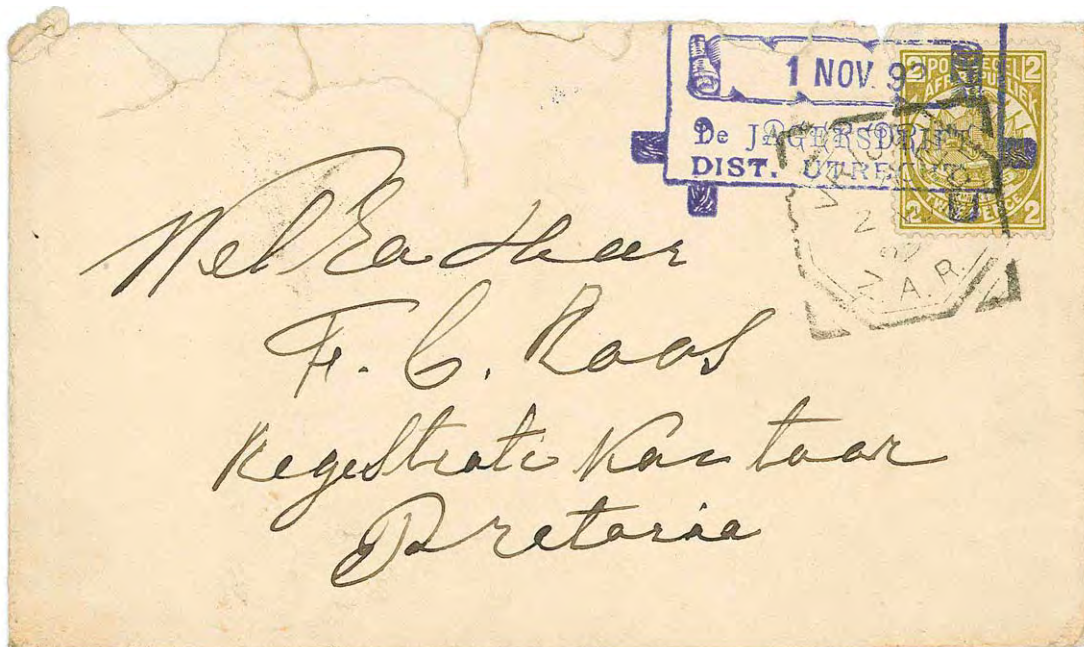 1 NOV. 9
De JAGERSDRIFT
DIST. UTRECHT
2 POSTZEGEL 2
AFR. REPUBLIEK
2 TWEE PENCE 2
2
Z.A.R.
Wel Ed Heer
F. C. Roos
Registratie Kantoor
Pretoria